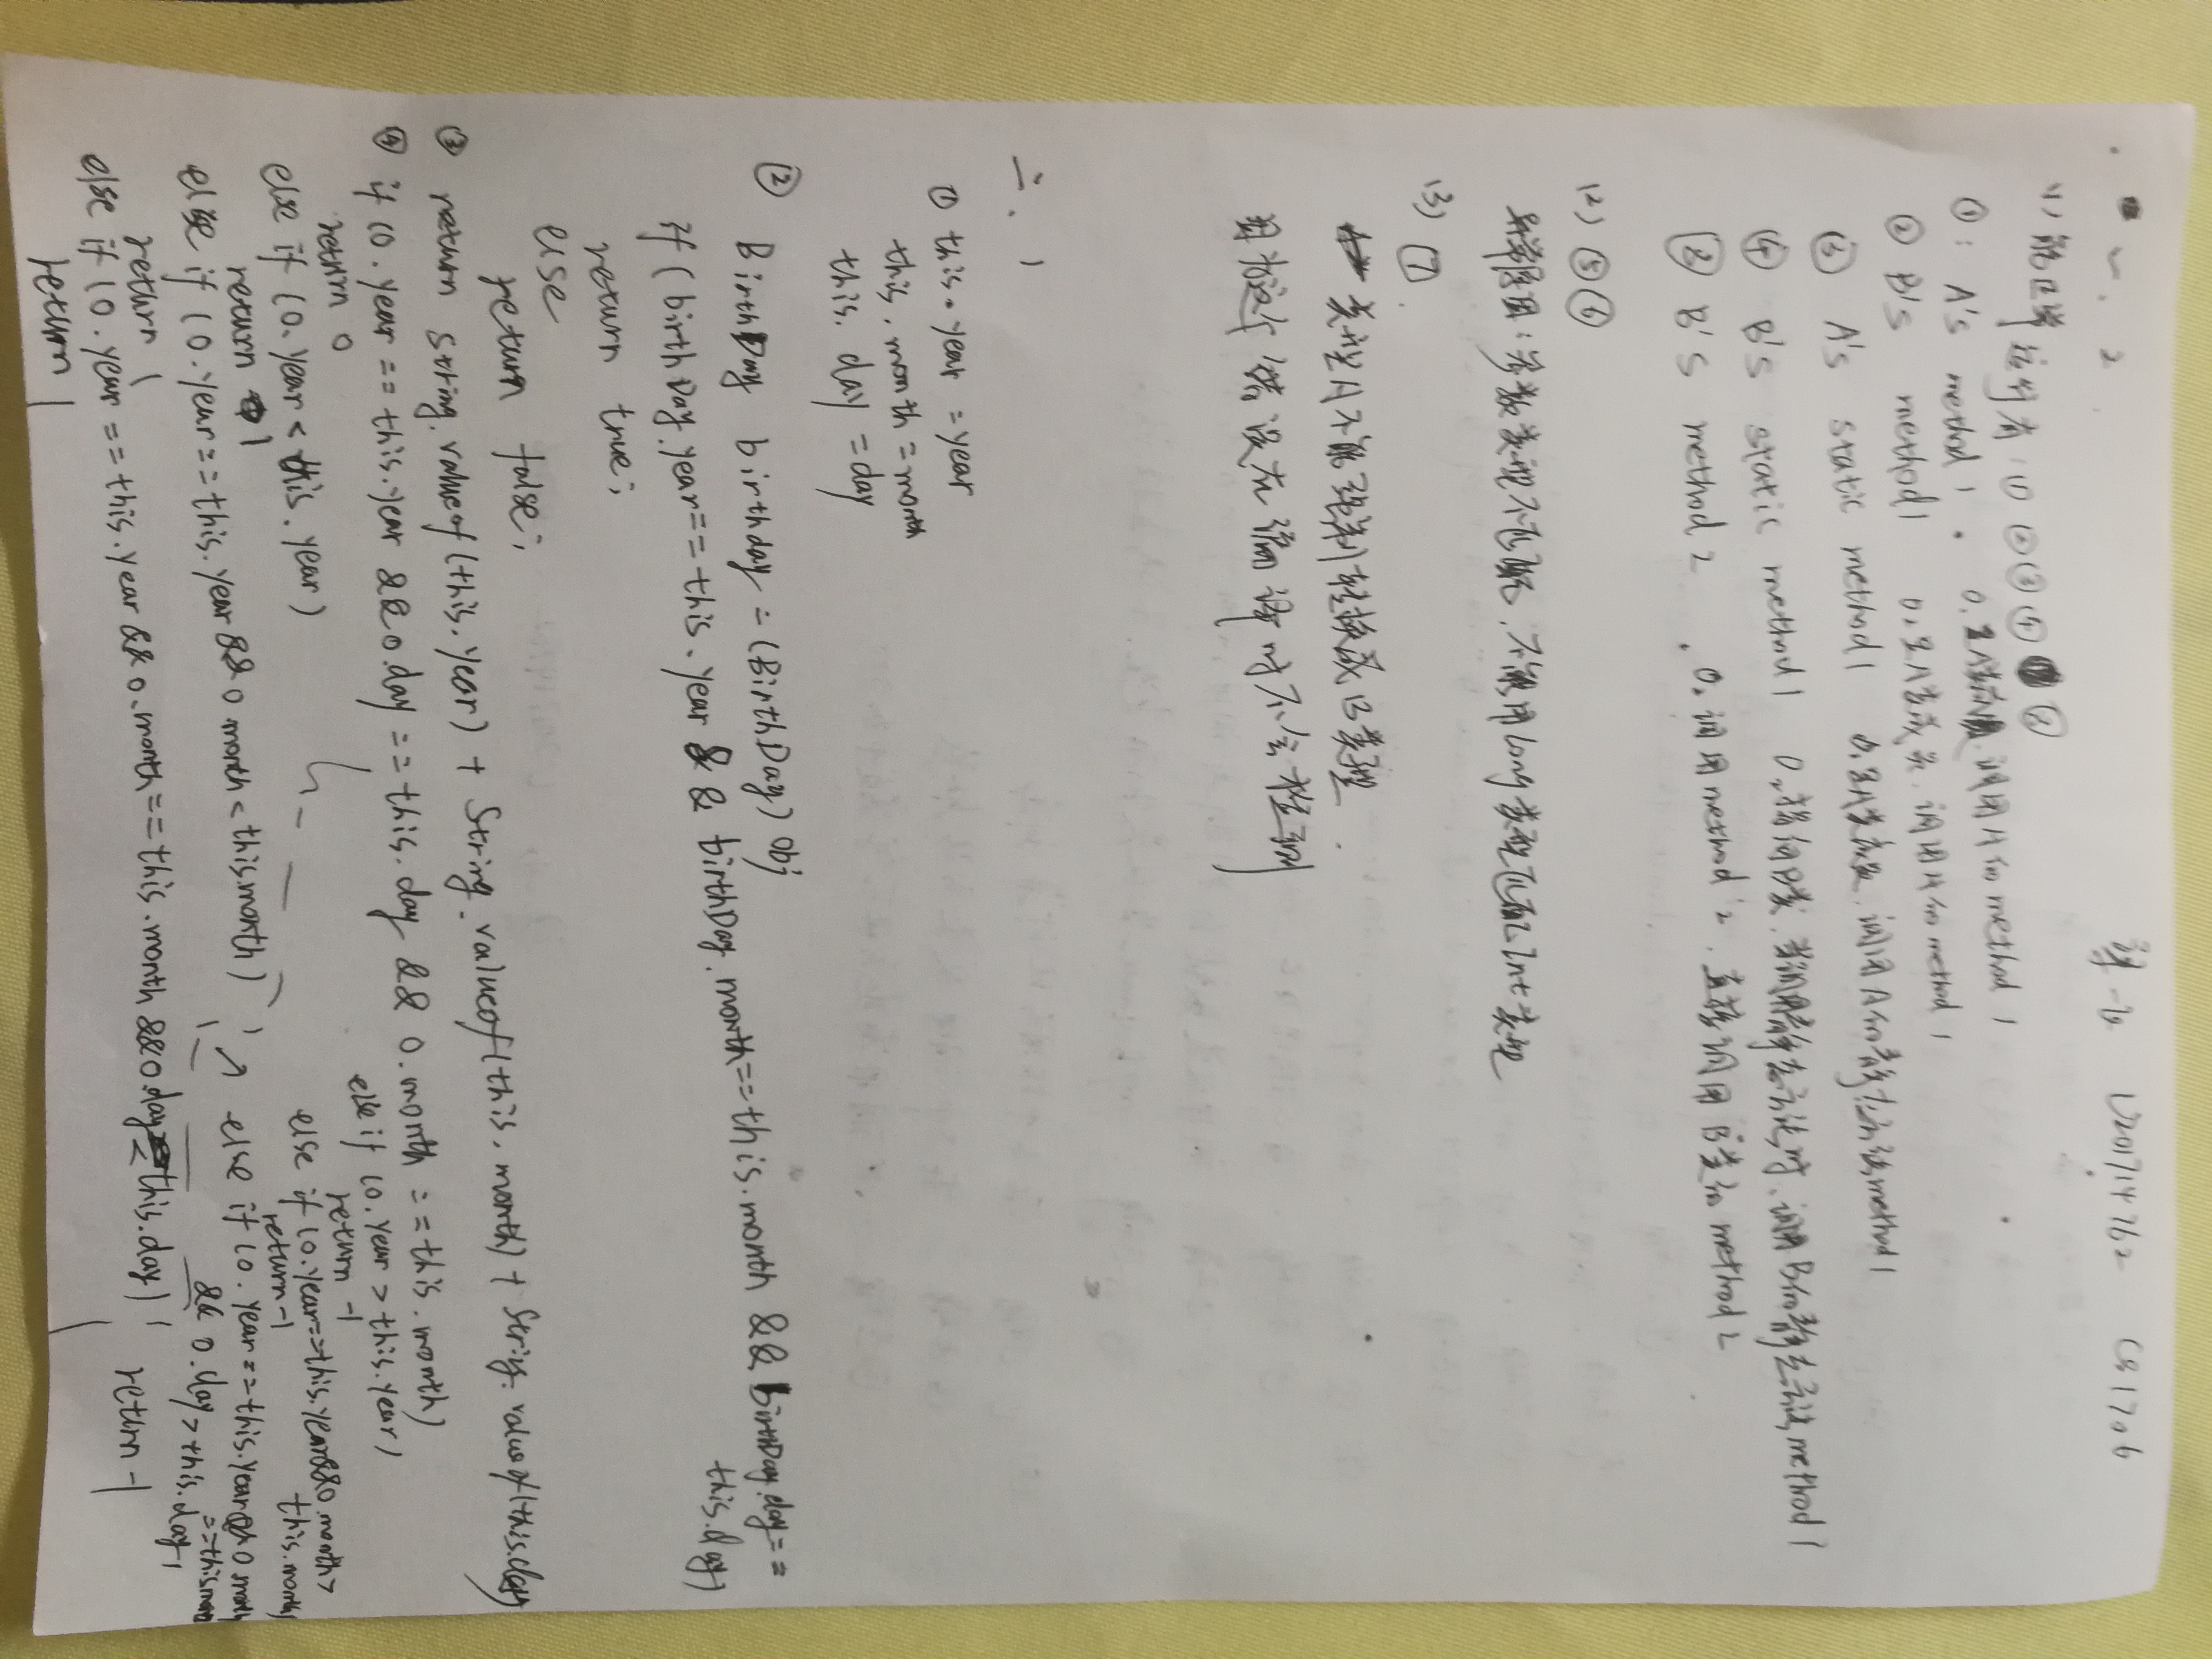 一. 2.
U201714762 CS1706
(1) 能正常运行有 ① ② ③ ④ ⑧
①: A's method 1. o.是A类, 调用A的method 1
② B's method 1 o.是A类, 调用A的method 1
③ A's static method 1 o.是A类, 调用A的静态方法method 1
④ B's static method 1 o.指向B类, 当调用静态方法时, 调用B的静态方法method 1
⑧ B's method 2. o.调用method 2, 直接调用B类的method 2
(2) ⑤⑥
异常原因: 参数类型不匹配, 不能用long类型匹配int类型
(3) ⑦.
类型A不能强制转换成B类型.
因为这个错误在编译时不会检测
二. 1
① this.year = year
this.month = month
this.day = day
②
BirthDay birthday = (BirthDay) obj
if (birthDay.year == this.year && birthDay.month == this.month && birthDay.day ==
this.day)
return true;
else
return false;
③ return string.valueof(this.year) + String.valueof(this.month) + String.valueof(this.day)
④ if (o.year == this.year && o.day == this.day && o.month == this.month)
return 0
else if (o.year < this.year)
return 1
else if (o.year == this.year && o month < this.month)
return 1
else if (o.year == this.year && o.month == this.month && o.day < this.day)
return 1
else if (o.year > this.year)
return -1
else if (o.year == this.year && o.month >
this.month)
return -1
else if (o.year == this.year && o month
== this.month
&& o.day > this.day)
return -1